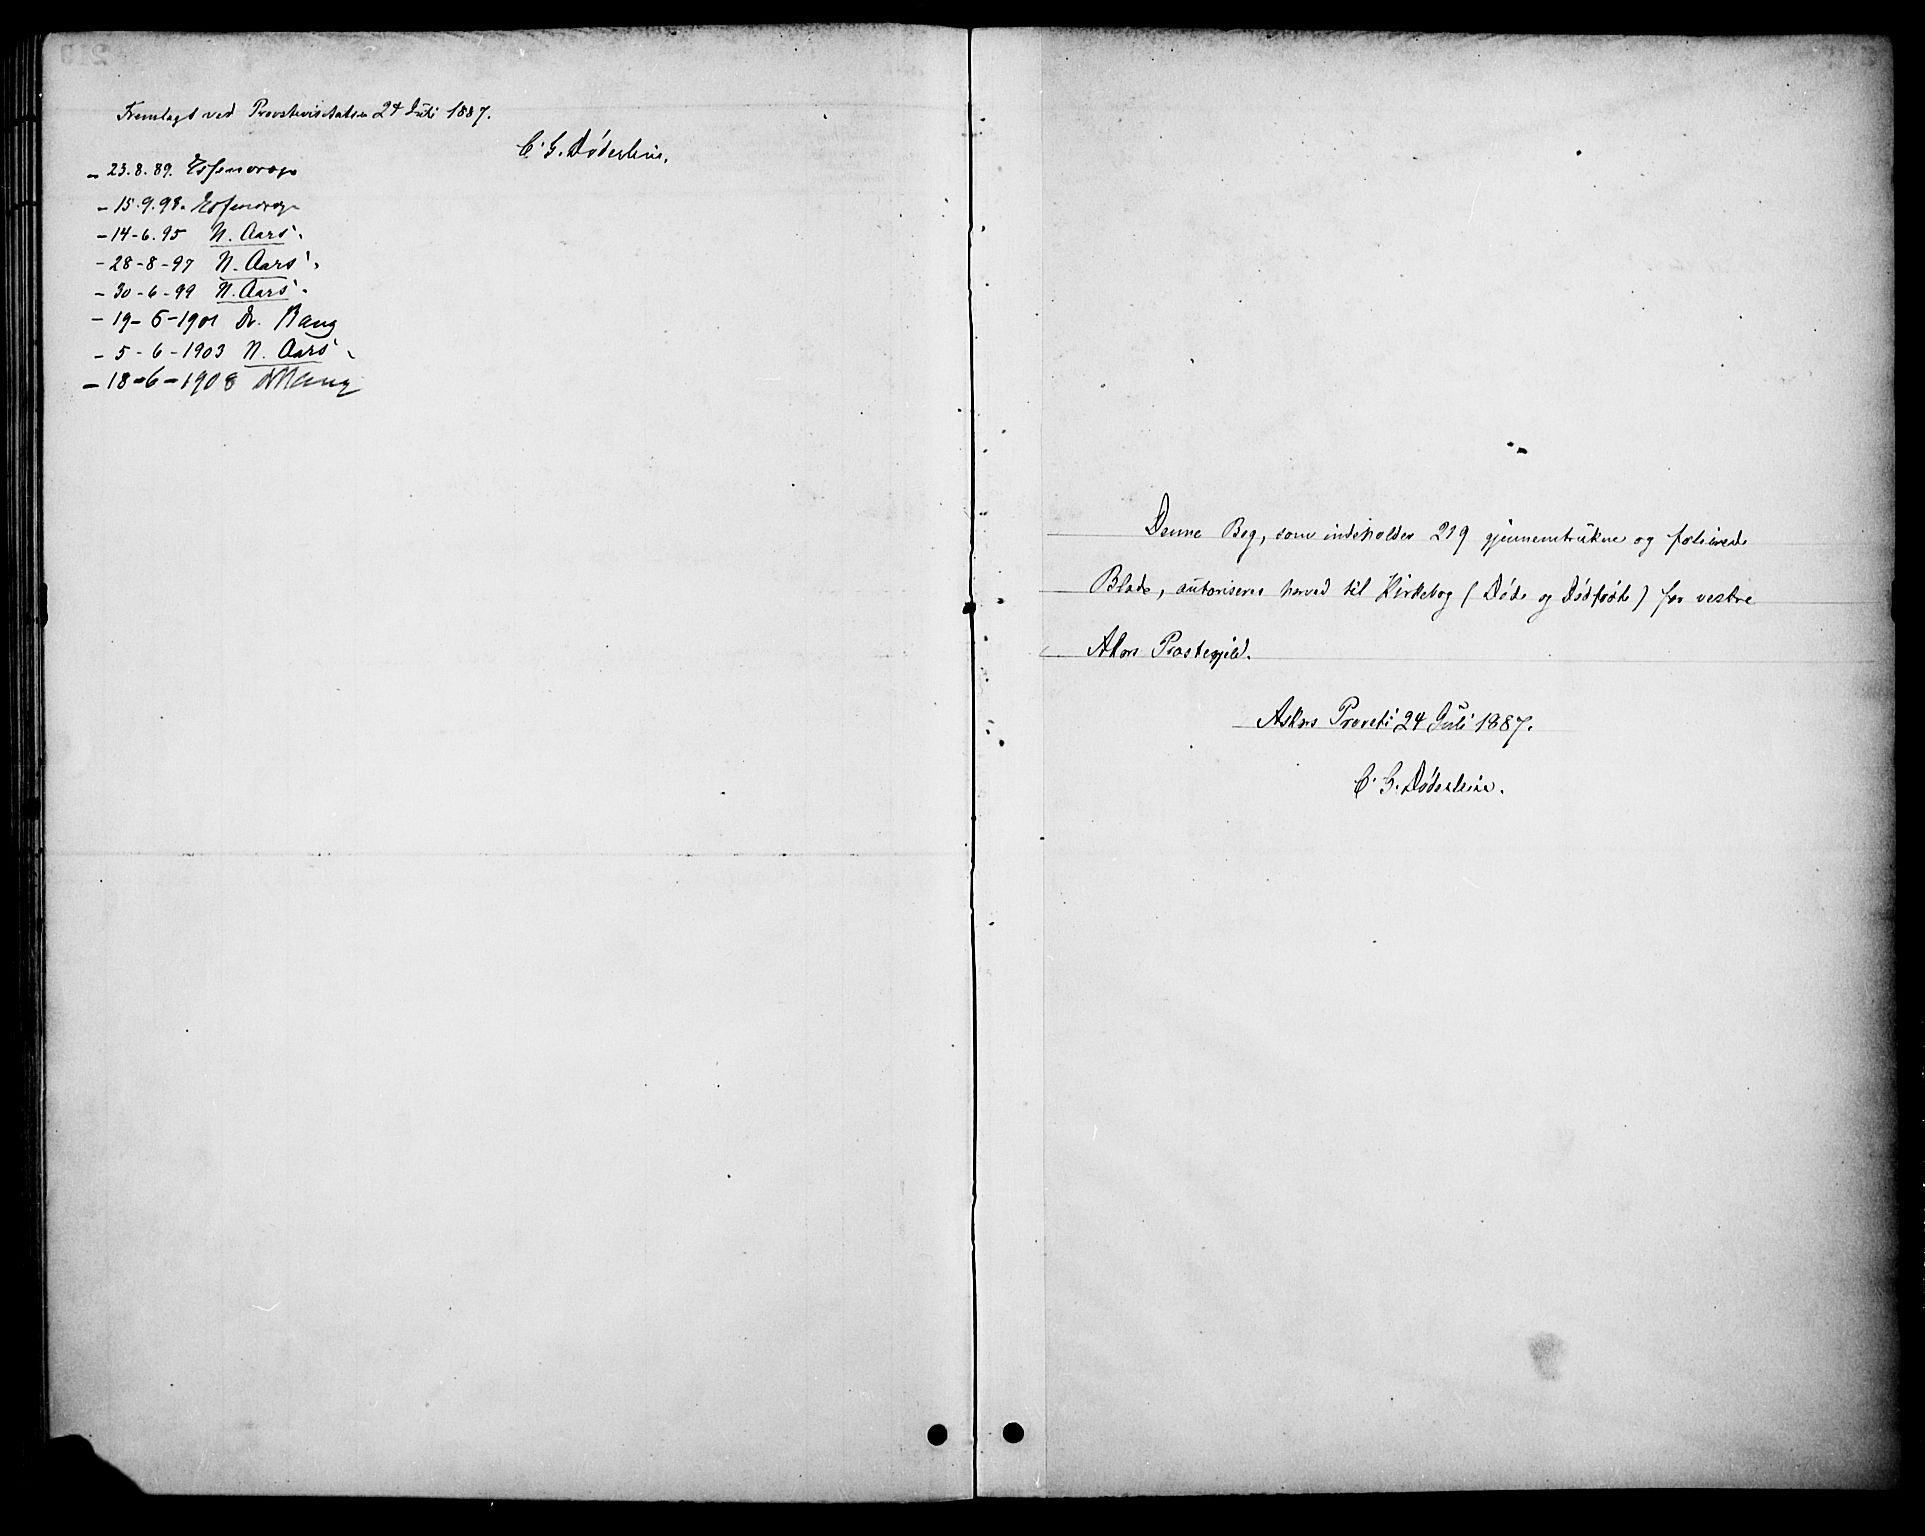 Fremlagt ved Provstevisitatsen 24 Juli 1887.
C. G. Døderlein.
- 23.8.89. Essendrop
- 15.9.93. Essendrop
- 14-6.95 N. Aars.
- 28-8-97 N. Aars.
- 30-6-99 N. Aars.
- 19-6-1901 Dr. Bang
- 5-6-1903 N. Aars.
- 18-6-1908 Bang
Denne Bog, som indeholder 219 gjennemtrukne og folierede
Blade, autoriseres herved til Kirkebog (Døde og Dødfødte) for vestre
Akers Præstegjeld.
Askers Provsti 24 Juli 1887.
C. G. Døderlein.
219